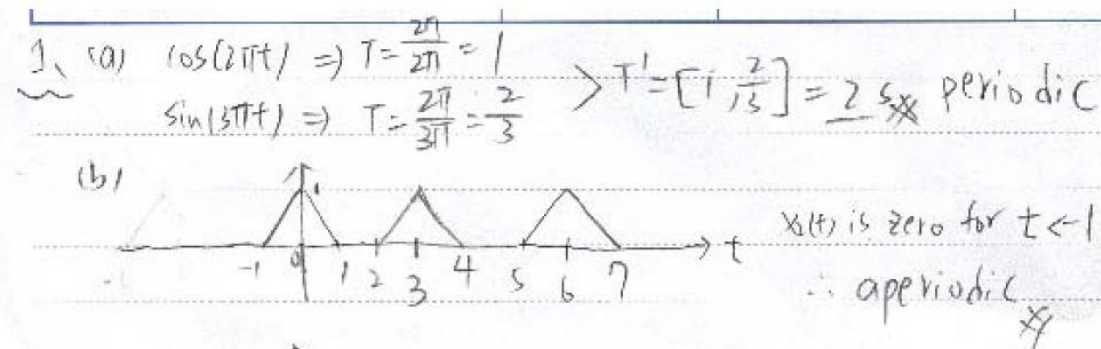 1、 (a) cos(2πt) ⇒ T = 2π/2π = 1
sin(3πt) ⇒ T = 2π/3π = 2/3
> T' = [1, 2/3] = 2 s periodic
(b)
1
-1 0 1 2 3 4 5 6 7 t
x(t) is zero for t < -1
∴ aperiodic